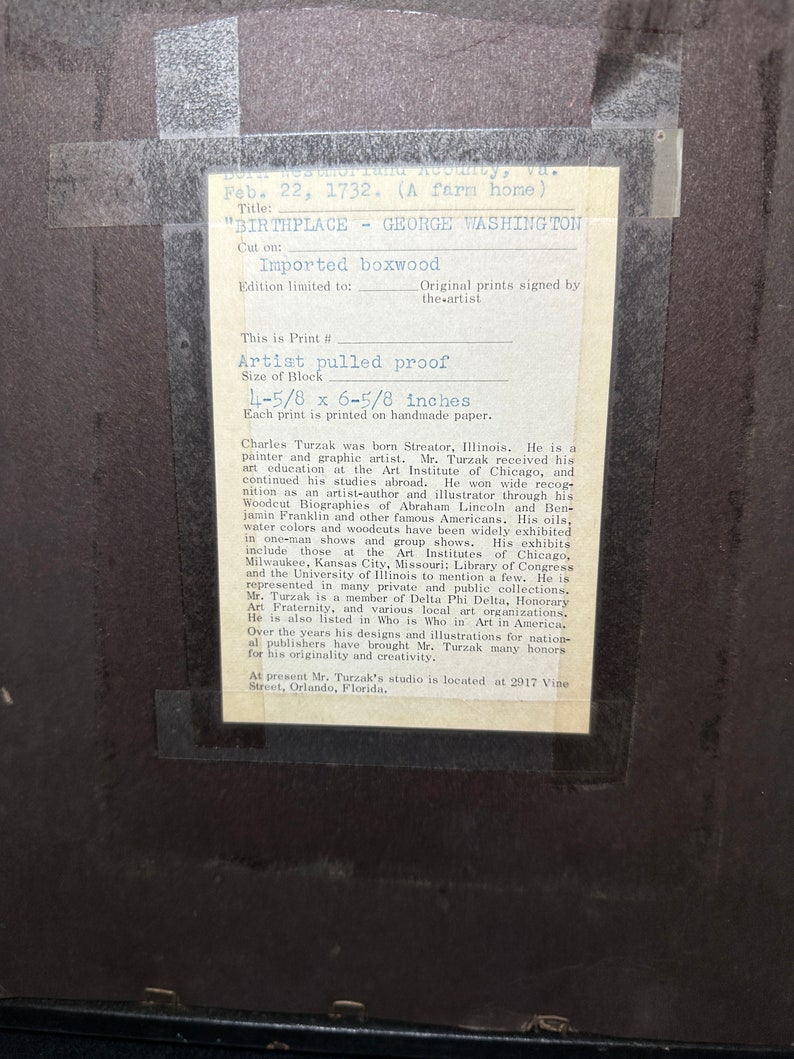 Born Westmorland Acounty, Va.
Feb. 22, 1732. (A farm home)
Title:
"BIRTHPLACE - GEORGE WASHINGTON
Cut on:
Imported boxwood
Edition limited to: ________ Original prints signed by
the artist
This is Print #
Artist pulled proof
Size of Block
4-5/8 x 6-5/8 inches
Each print is printed on handmade paper.
Charles Turzak was born Streator, Illinois. He is a
painter and graphic artist. Mr. Turzak received his
art education at the Art Institute of Chicago, and
continued his studies abroad. He won wide recog-
nition as an artist-author and illustrator through his
Woodcut Biographies of Abraham Lincoln and Ben-
jamin Franklin and other famous Americans. His oils,
water colors and woodcuts have been widely exhibited
in one-man shows and group shows. His exhibits
include those at the Art Institutes of Chicago,
Milwaukee, Kansas City, Missouri; Library of Congress
and the University of Illinois to mention a few. He is
represented in many private and public collections.
Mr. Turzak is a member of Delta Phi Delta, Honorary
Art Fraternity, and various local art organizations.
He is also listed in Who is Who in Art in America.
Over the years his designs and illustrations for nation-
al publishers have brought Mr. Turzak many honors
for his originality and creativity.
At present Mr. Turzak's studio is located at 2917 Vine
Street, Orlando, Florida.